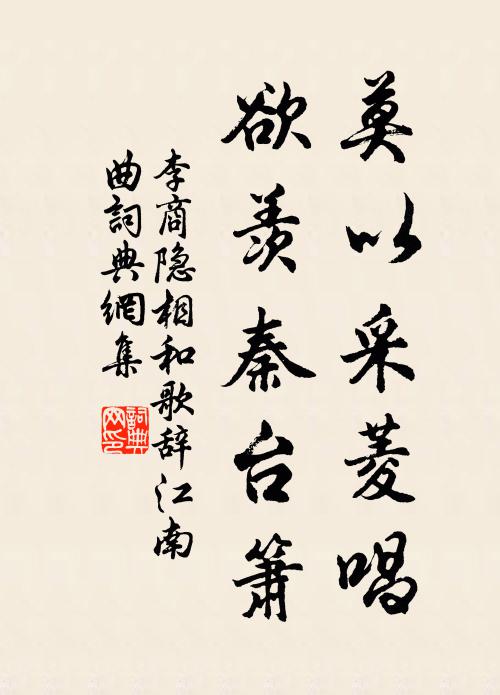 莫以采菱唱
欲羡秦台箫
李商隐相和歌辞江南
曲詞典網集
詞典
网印